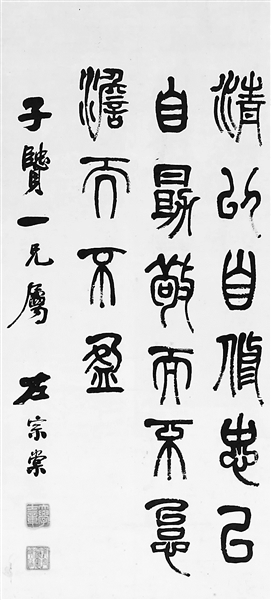 清以自脩忠以
自勗敬而不怠
澹而不盈
子贤一兄屬 左宗棠